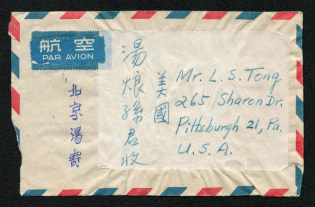 航空
PAR AVION
北京湯寄
湯烺孫君收
美國
Mr. L. S. Tong
265 Sharon Dr.
Pittsburgh 21, Pa.
U. S. A.